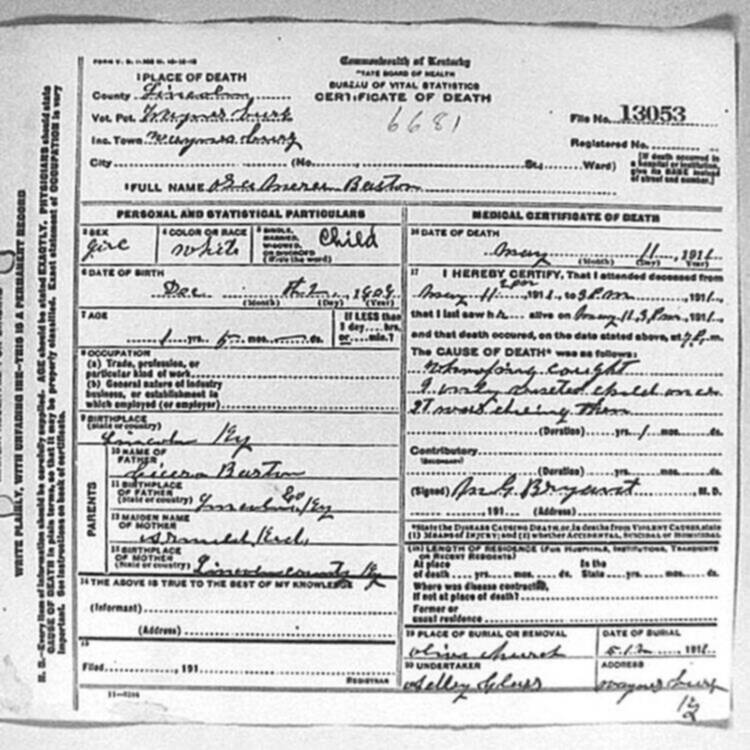 FORM V. S. 1-
Commonwealth of Kentucky
STATE BOARD OF HEALTH
BUREAU OF VITAL STATISTICS
CERTIFICATE OF DEATH
1 PLACE OF DEATH
County Lincoln
Vot. Pct.
Inc. Town
City (No. St.; Ward)
6681
File No. 13053
Registered No.
[If death occurred in a hospital or institution, give its NAME instead of street and number.]
2 FULL NAME Barton
PERSONAL AND STATISTICAL PARTICULARS
3 SEX girl
4 COLOR OR RACE White
5 SINGLE, MARRIED, WIDOWED, OR DIVORCED (Write the word) Child
6 DATE OF BIRTH
Dec 1909
(Month) (Day) (Year)
7 AGE
1 yrs. 5 mos. ds.
If LESS than 1 day hrs. or min.?
8 OCCUPATION
(a) Trade, profession, or particular kind of work
(b) General nature of industry business, or establishment in which employed (or employer)
9 BIRTHPLACE
(State or country)
Lincoln Ky
PARENTS
10 NAME OF FATHER
Cicero Barton
11 BIRTHPLACE OF FATHER
(State or country) Lincoln Co Ky
12 MAIDEN NAME OF MOTHER
13 BIRTHPLACE OF MOTHER
(State or country) Lincoln county Ky
14 THE ABOVE IS TRUE TO THE BEST OF MY KNOWLEDGE
(Informant)
(Address)
15
Filed , 191
REGISTRAR
MEDICAL CERTIFICATE OF DEATH
16 DATE OF DEATH
May 11, 1911
(Month) (Day) (Year)
17 I HEREBY CERTIFY, That I attended deceased from
May 11 2pm, 1911, to 3 P.m, 1911,
that I last saw h alive on May 11 3 Pm, 1911,
and that death occured, on the date stated above, at 7 P.m.
The CAUSE OF DEATH* was as follows:
Whooping cought
I only visited child once
It was dieing then
(Duration) yrs. 1 mos. ds.
Contributory
(SECONDARY)
(Duration) yrs. mos. ds.
(Signed) Bryant, M. D.
, 191 (Address)
*State the DISEASE CAUSING DEATH or, in deaths from VIOLENT CAUSES, state (1) MEANS OF INJURY; and (2) whether ACCIDENTAL, SUICIDAL or HOMICIDAL
(18) LENGTH OF RESIDENCE (FOR HOSPITALS, INSTITUTIONS, TRANSIENTS OR RECENT RESIDENTS)
At place of death yrs. mos. ds. In the State yrs. mos. ds.
Where was disease contracted, if not at place of death?
Former or usual residence
19 PLACE OF BURIAL OR REMOVAL
Olive church
DATE OF BURIAL
5-12, 1911
20 UNDERTAKER
ADDRESS
11-
WRITE PLAINLY, WITH UNFADING INK—THIS IS A PERMANENT RECORD
N. B.—Every item of information should be carefully supplied. AGE should be stated EXACTLY. PHYSICIANS should state CAUSE OF DEATH in plain terms, so that it may be properly classified. Exact statement of OCCUPATION is very important. See instructions on back of certificate.